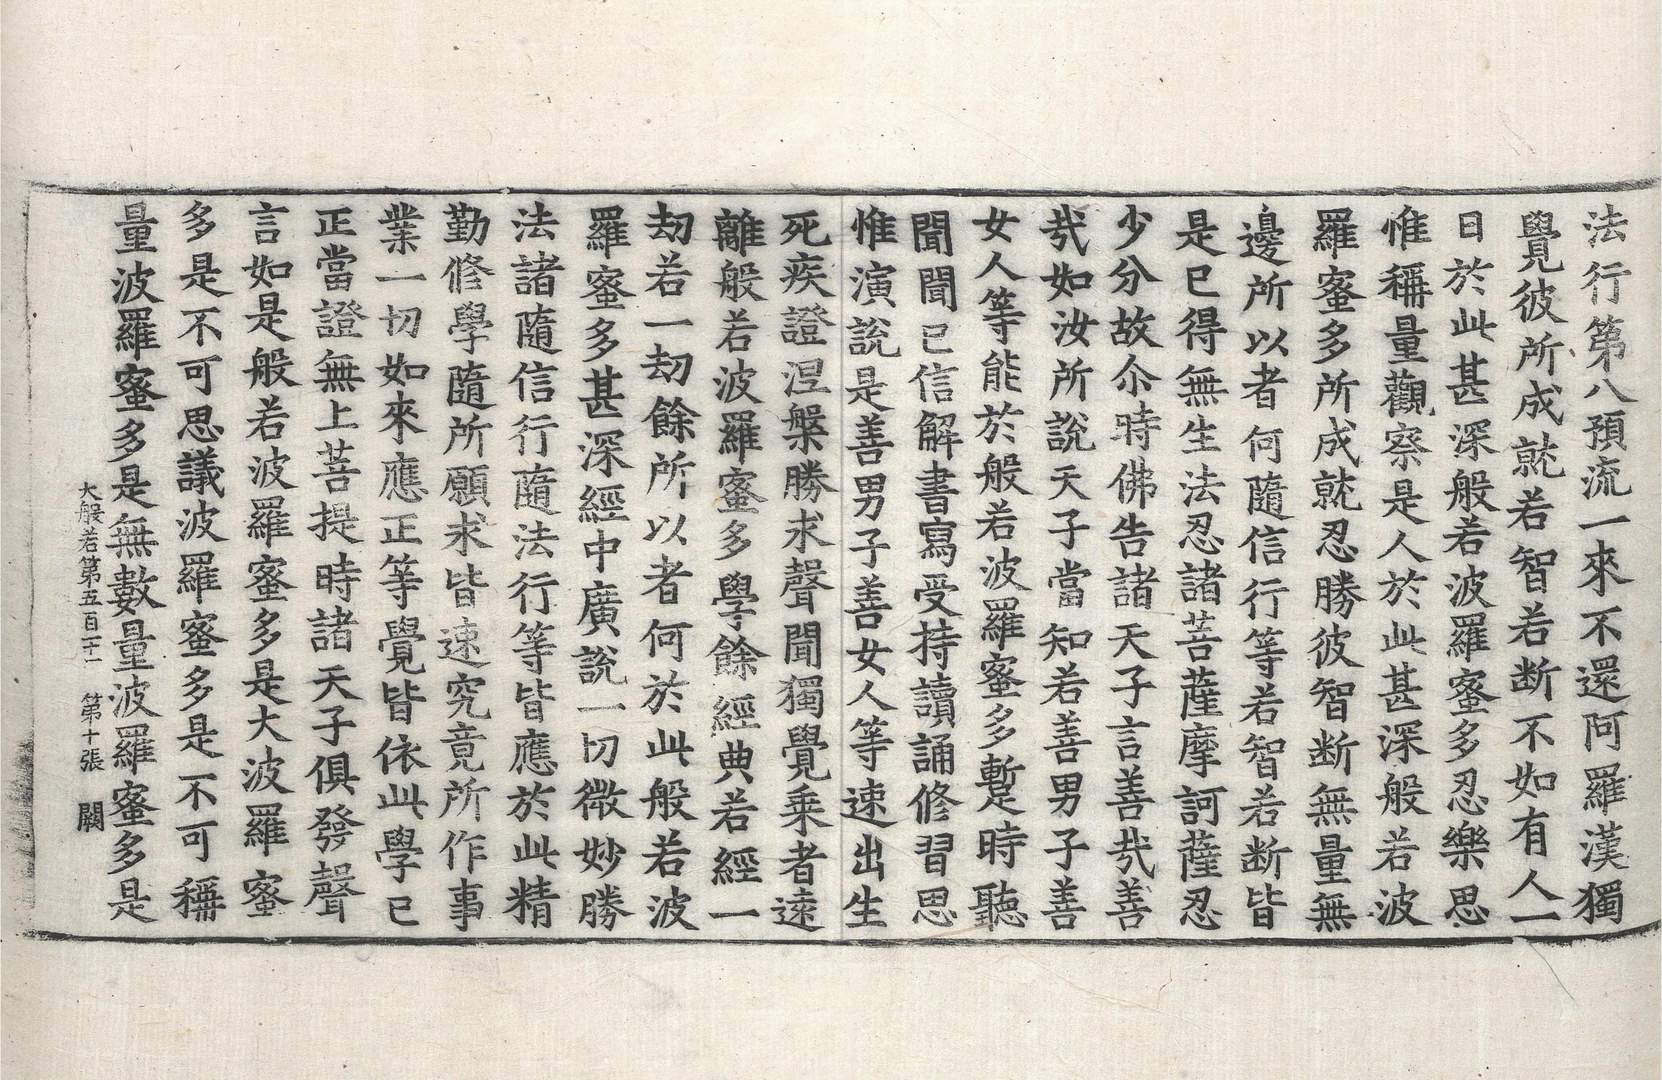 法行第八預流一來不還阿羅漢獨
覺彼所成就若智若断不如有人一
日於此甚深般若波羅蜜多忍樂思
惟稱量觀察是人於此甚深般若波
羅蜜多所成就忍勝彼智断無量無
邊所以者何隨信行等若智若断皆
是已得無生法忍諸菩薩摩訶薩忍
少分故尒時佛告諸天子言善㢤善
㢤如汝所說天子當知若善男子善
女人等能於般若波羅蜜多暫時聽
聞聞已信解書寫受持讀誦修習思
惟演說是善男子善女人等速出生
死疾證涅槃勝求聲聞獨覺乗者遠
離般若波羅蜜多學餘經典若經一
劫若一劫餘所以者何於此般若波
羅蜜多甚深經中廣說一切微妙勝
法諸隨信行隨法行等皆應於此精
勤修學隨所願求皆速究竟所作事
業一切如來應正等覺皆依此學已
正當證無上菩提時諸天子俱發聲
言如是般若波羅蜜多是大波羅蜜
多是不可思議波羅蜜多是不可稱
量波羅蜜多是無數量波羅蜜多是
大般若第五百十一 第十張 闕